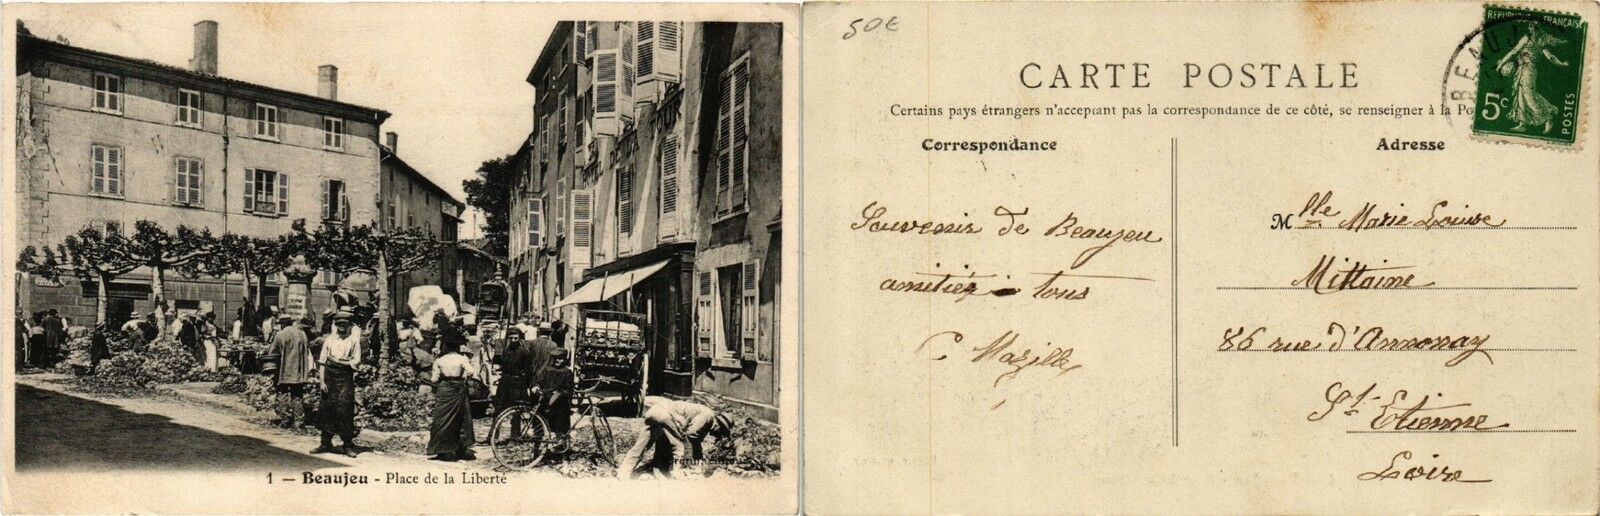 HOTEL DE LA TOUR
1 — Beaujeu - Place de la Liberté
50€
CARTE POSTALE
Certains pays étrangers n'acceptant pas la correspondance de ce côté, se renseigner à la
Correspondance
Adresse
REPUBLIQUE FRANÇAISE
5c
POSTES
BEAUJ
Souvenir de Beaujeu
amitiés à tous
C Mazille
Mlle Marie Louise
Mittaine
86 rue d'Annonay
St Etienne
Loire